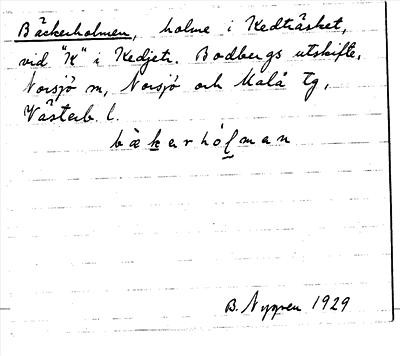 Bäckerholmen, holme i Kedträsket,
vid "K" i Kedjetr. Bodbergs utskifte,
Norsjö sn, Norsjö och Malå tg,
Västerb. l.
bäkerhólman
B. Nygren 1929